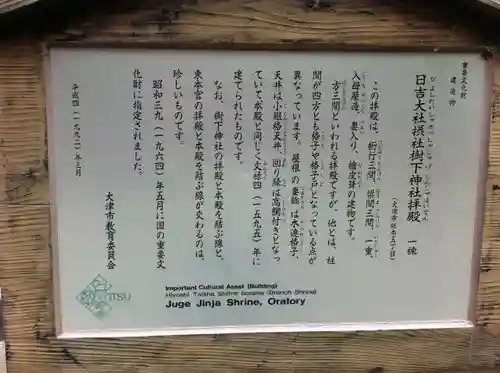 重要文化財
建造物
日吉大社摂社樹下神社拝殿 一棟
ひよしたいしゃせっしゃじゅげじんじゃはいでん
この拝殿は、桁行三間、梁間三間、一重
入母屋造、妻入り、檜皮葺の建物です。
方三間といわれる拝殿ですが、他とは、柱
間が四方とも格子や格子戸となっている点が
異なっています。屋根の妻飾は木連格子、
天井は小組格天井、回り縁は高欄付きとなっ
ていて本殿と同じく文禄四(一五九五)年に
建てられたものです。
なお、樹下神社の拝殿と本殿を結ぶ線と、
東本宮の拝殿と本殿を結ぶ線が交わるのは、
珍しいものです。
昭和三九(一九六四)年五月に国の重要文
化財に指定されました。
大津市教育委員会
平成四(一九九二)年三月
Important Cultural Asset (Building)
Hiyoshi Taisha Shrine Sessha (Branch Shrine)
Juge Jinja Shrine, Oratory